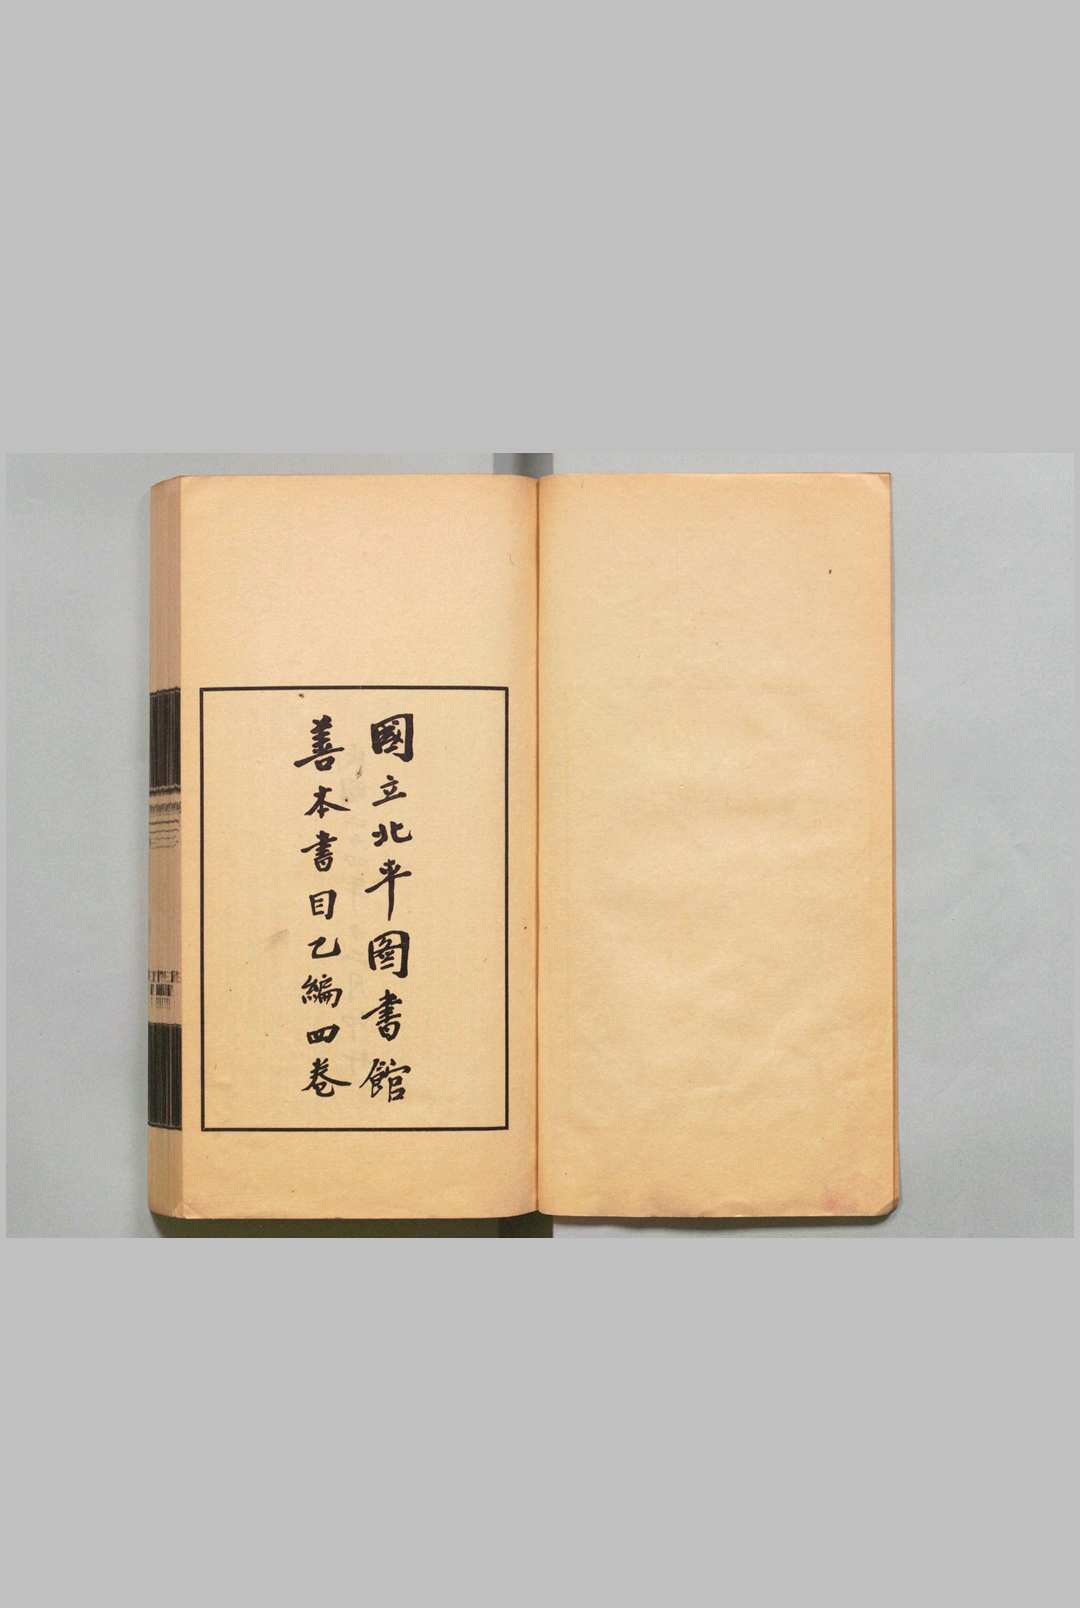 國立北平圖書館
善本書目乙編四卷